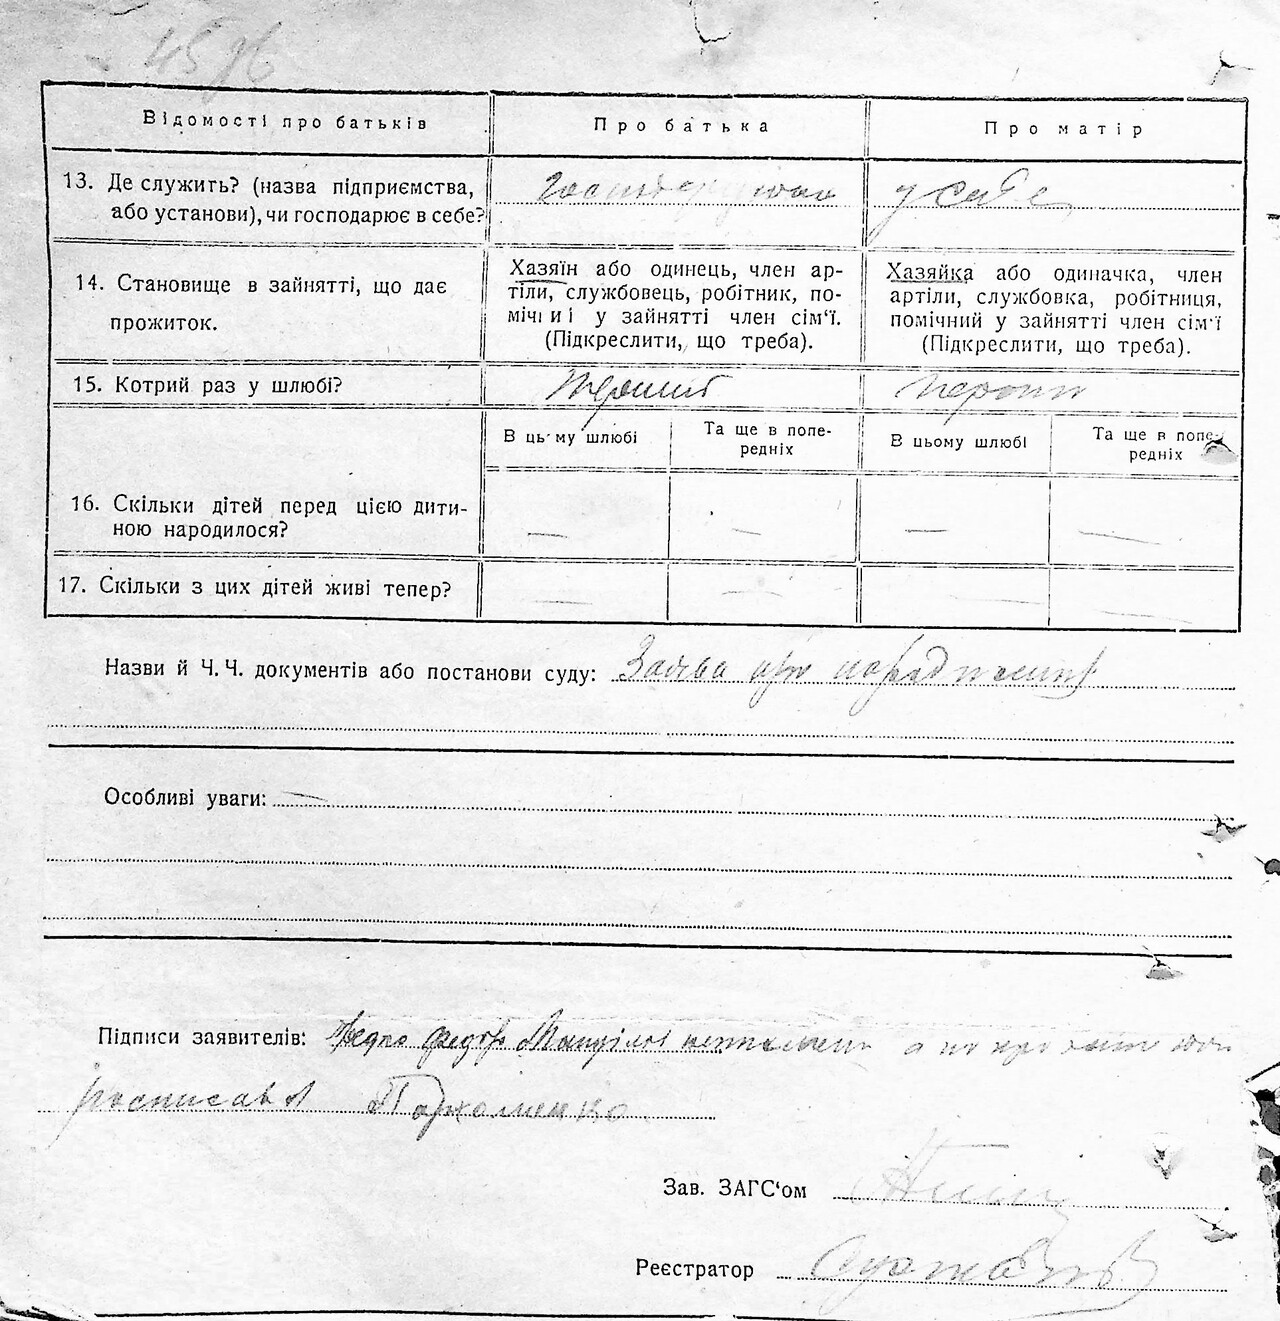 45
Відомості про батьків
Про батька
Про матір
13. Де служить? (назва підприємства,
або установи), чи господарює в себе?
у себе
14. Становище в зайнятті, що дає
прожиток.
Хазяїн або одинець, член ар-
тіли, службовець, робітник, по-
мічний у зайнятті член сім'ї.
(Підкреслити, що треба).
Хазяйка або одиначка, член
артіли, службовка, робітниця,
помічний у зайнятті член сім'ї
(Підкреслити, що треба).
15. Котрий раз у шлюбі?
Перший
В цьому шлюбі
Та ще в попе-
редніх
В цьому шлюбі
Та ще в попе-
редніх
16. Скільки дітей перед цією дити-
ною народилося?
— — — —
17. Скільки з цих дітей живі тепер?
— — — —
Назви й Ч. Ч. документів або постанови суду: Заява про народження
Особливі уваги: —
Підписи заявителів: Федор
росписався Пархоменко
Зав. ЗАГС'ом
Реєстратор